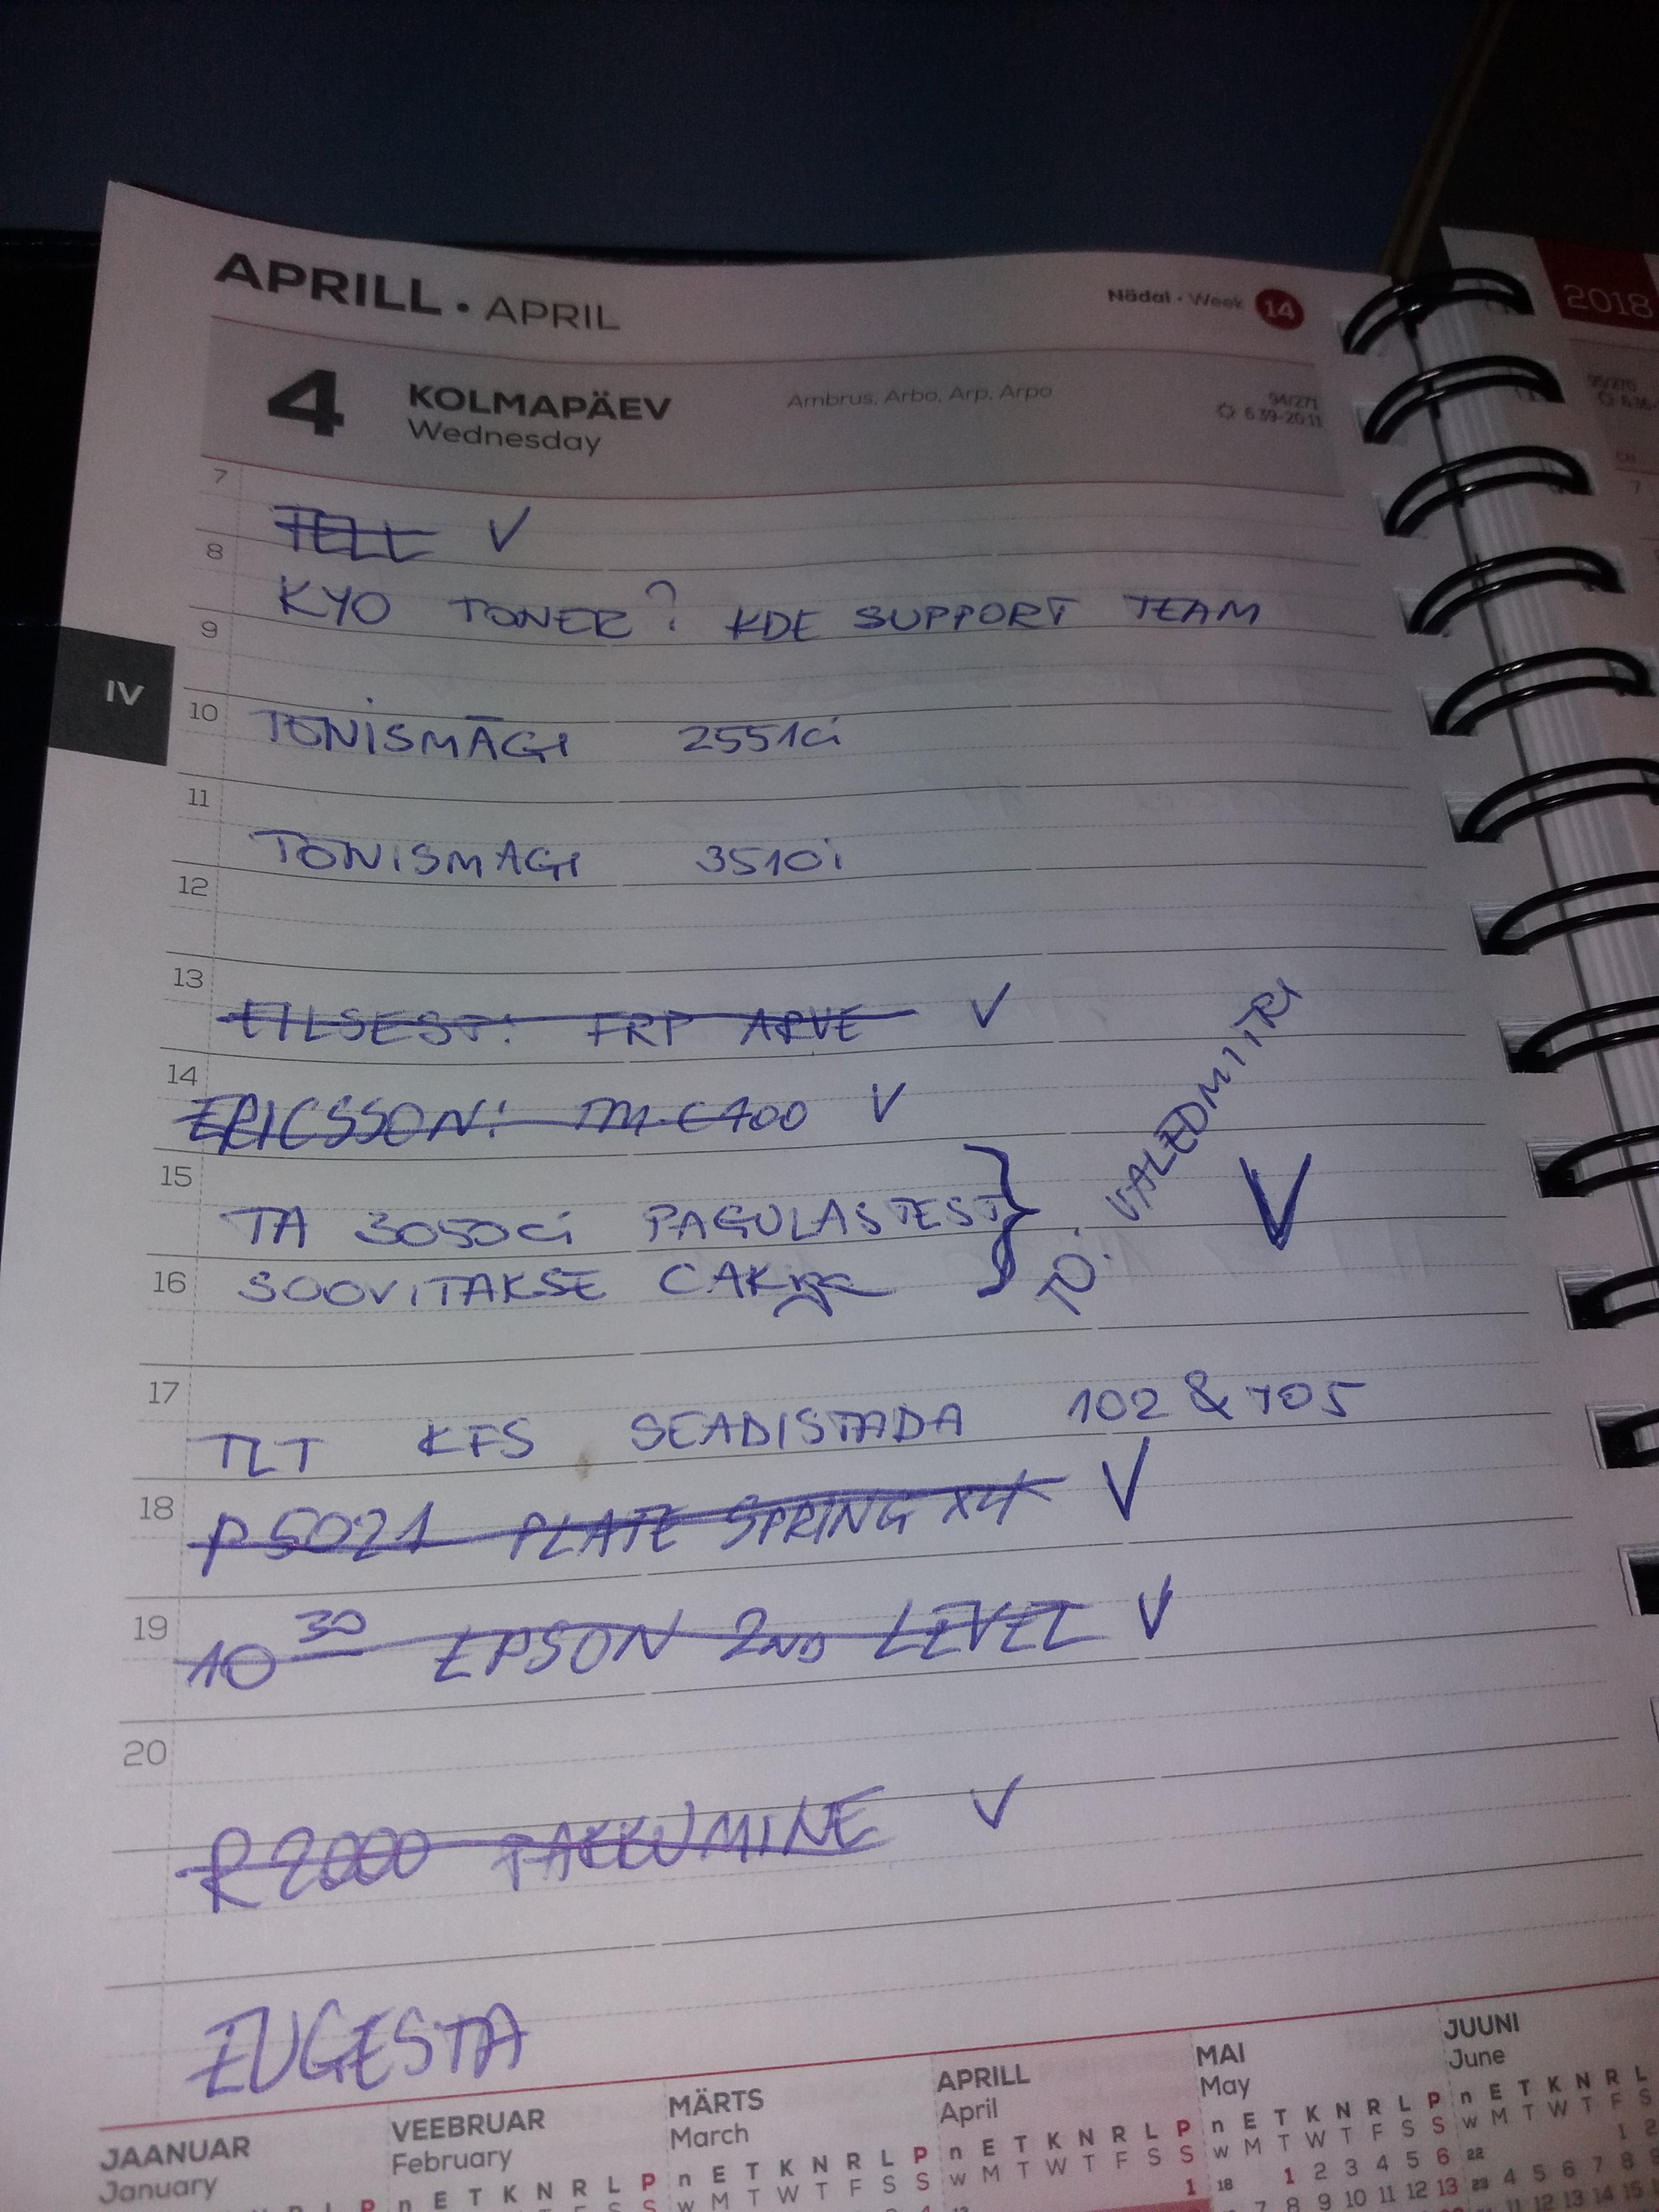 APRILL • APRIL
Nädal • Week 14
2018
4 KOLMAPÄEV
Wednesday
Ambrus, Arbo, Arp, Arpo
94/271
6.39-20.11
7
TELL V
8
KYO TONER? KDE SUPPORT TEAM
9
IV
10
TONISMÄGI 2551ci
11
TONISMAGI 3510i
12
13
EILSEST: FRP ARVE V
14
ERICSSON: V
15
TA 3050ci PAGULASTEST
TO: VALEDMITRI V
16
SOOVITAKSE
17
TLT KFS SEADISTADA 102 & 705
18
P5021 PLATE SPRING X4 V
19
10 30 EPSON 2ND LEVEL V
20
R2000 PAKKUMINE V
EUGESTA
JAANUAR VEEBRUAR MÄRTS APRILL MAI JUUNI
January February March April May June
n E T K N R L P n E T K N R L P n E T K N R L P n E T K N R L
w M T W T F S S w M T W T F S S w M T W T F S
1 18 1 2 3 4 5 6 22 1 2
7 8 9 10 11 12 13 23 4 5 6 7 8